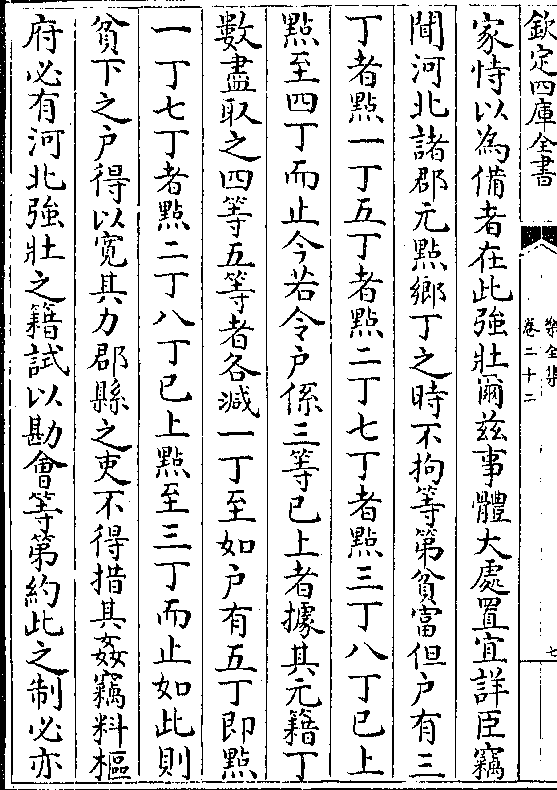 欽定四庫全書
樂全集
卷二十二
七
家恃以為備者在此強壯爾兹事體大處置宜詳臣竊
聞河北諸郡元點鄉丁之時不拘等第貧富但户有三
丁者點一丁五丁者點二丁七丁者點三丁八丁已上
點至四丁而止今若令户係三等已上者據其元籍丁
數盡取之四等五等者各減一丁至如户有五丁即點
一丁七丁者點二丁八丁已上點至三丁而止如此則
貧下之户得以寛其力郡縣之吏不得措其姦竊料樞
府必有河北強壯之籍試以勘會等第約此之制必亦